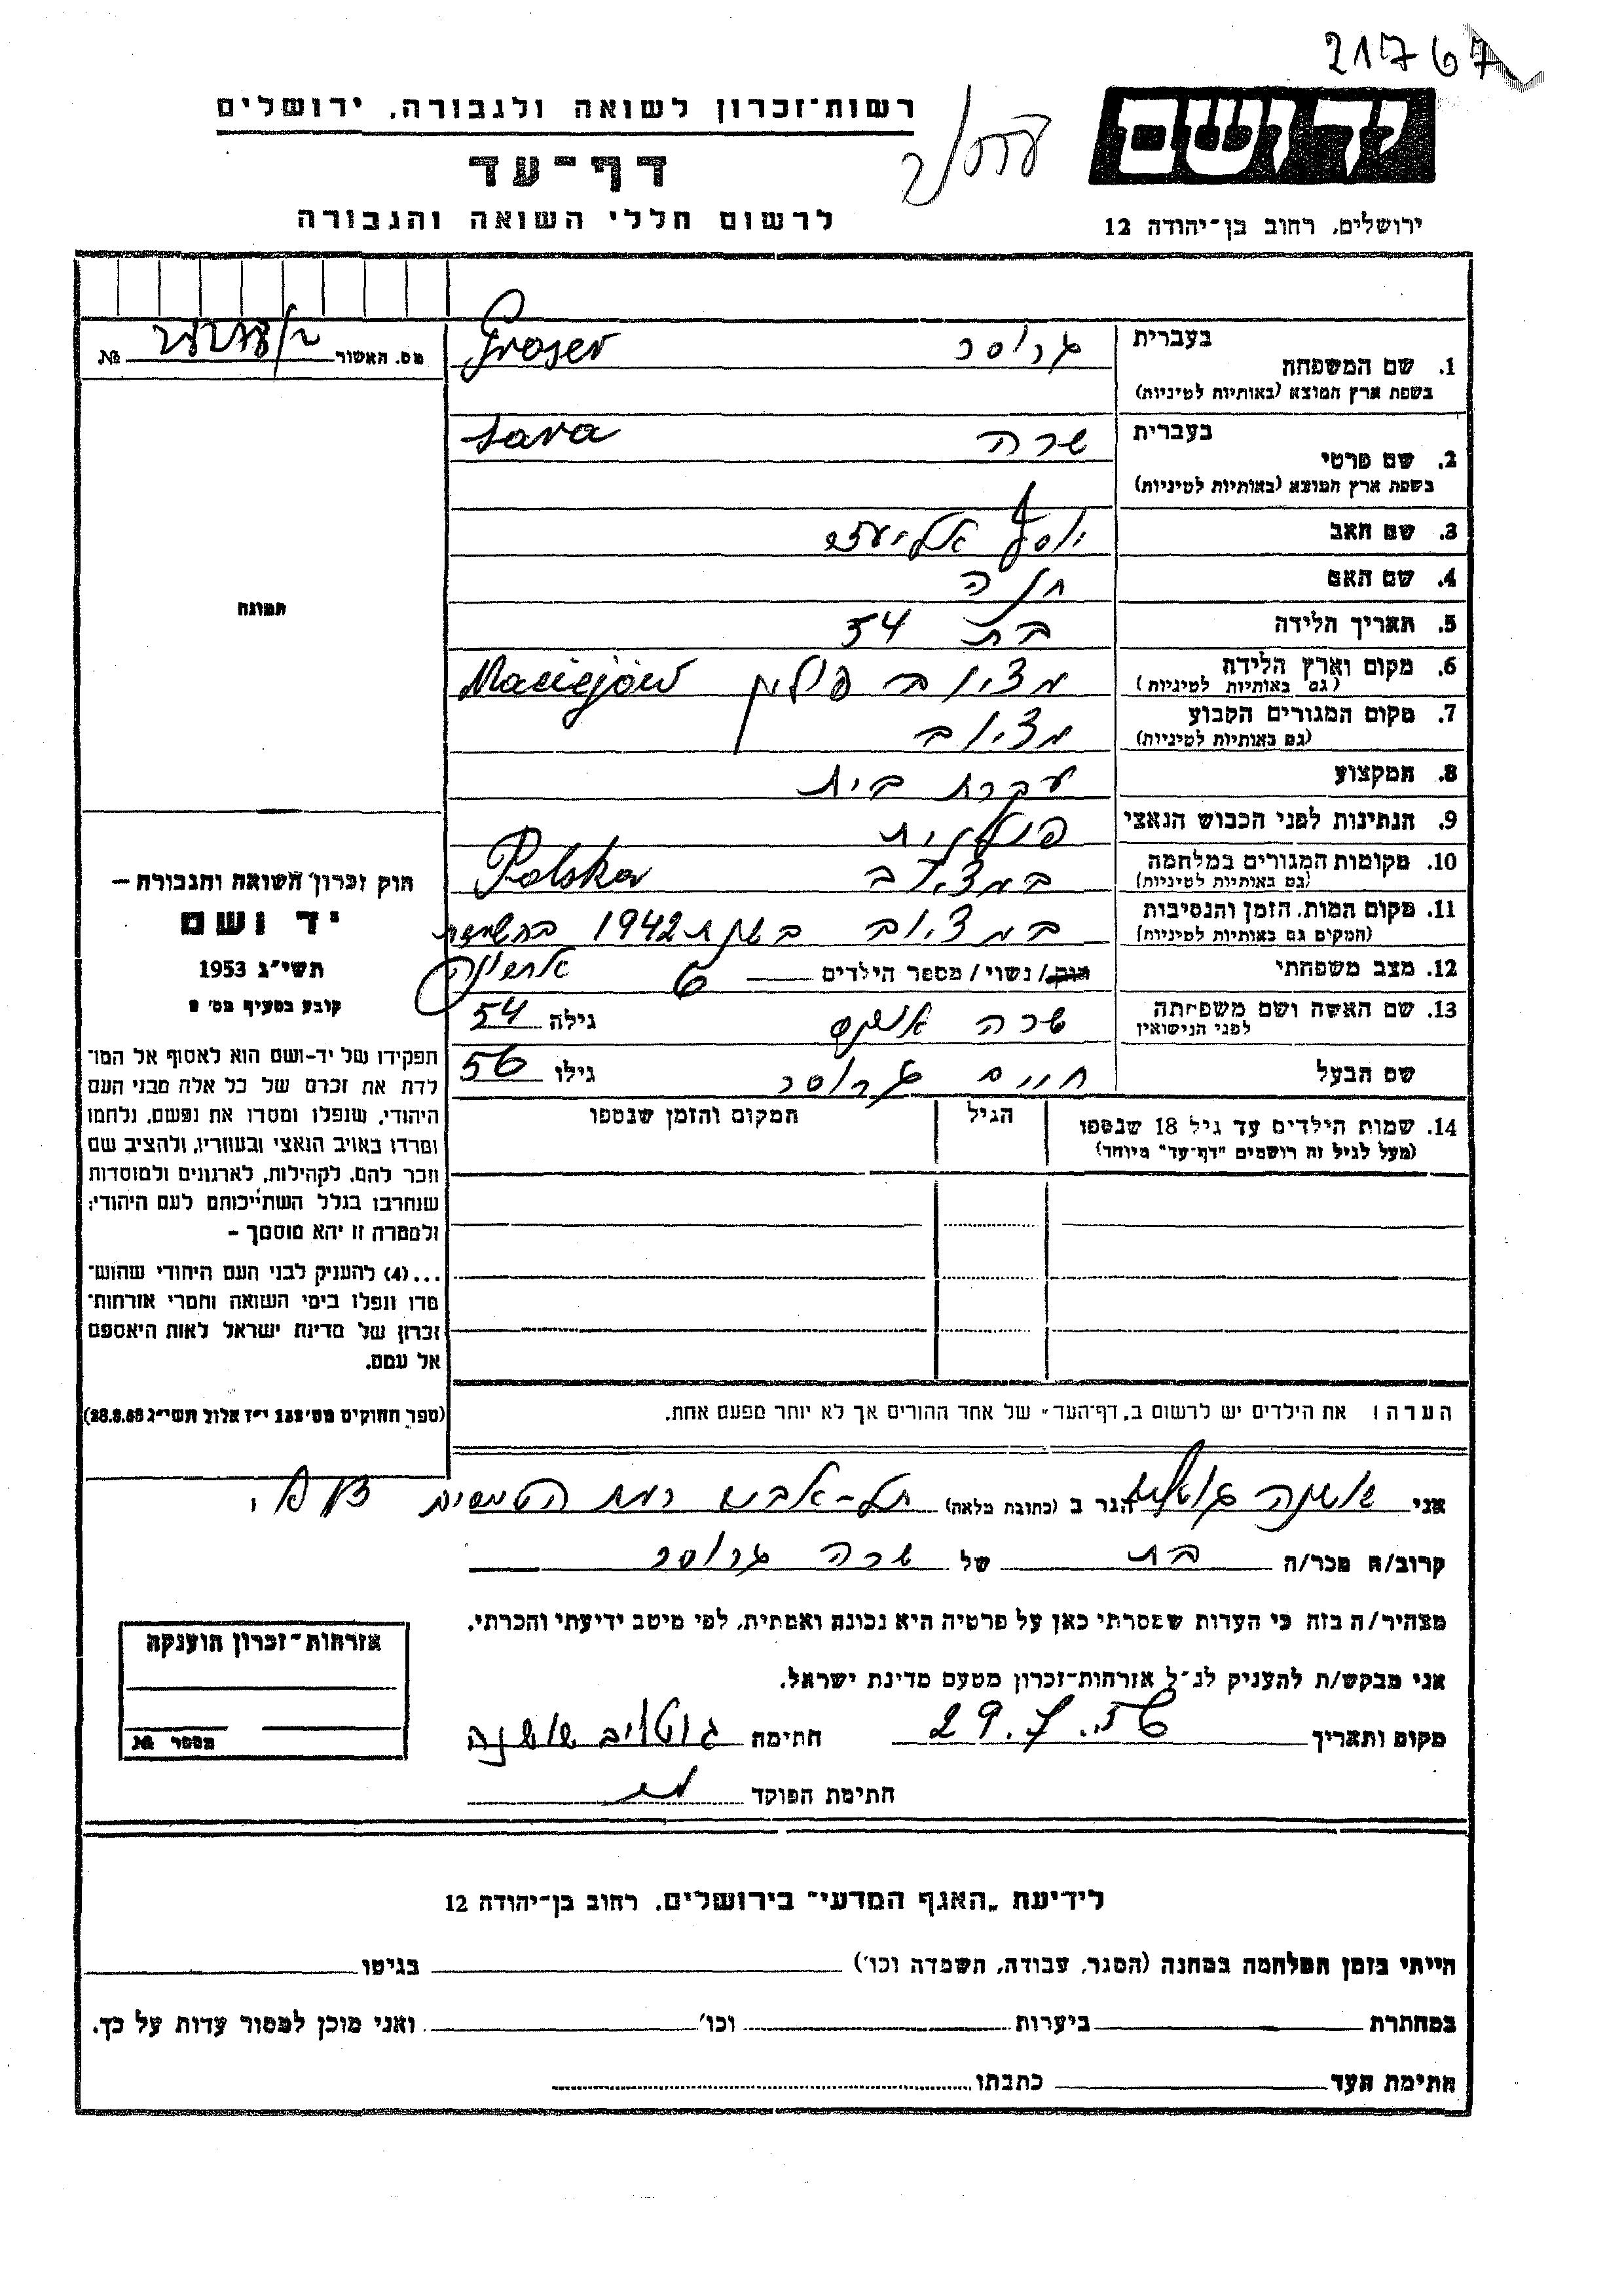 21767
רשות־זכרון לשואה ולגבורה, ירושלים
דף־עד
לרשום חללי השואה והגבורה
יד ושם
ירושלים, רחוב בן־יהודה 12
מס. האשור №
בעברית
1. שם המשפחה
בשפת ארץ המוצא (באותיות לטיניות)
גרוסר Groser
בעברית
2. שם פרטי
בשפת ארץ המוצא (באותיות לטיניות)
שרה Sara
3. שם האב יוסף אליעזר
4. שם האם חנה
5. תאריך הלידה בת 54
6. מקום וארץ הלידה מציוב פולין Maciejów
(גם באותיות לטיניות)
7. מקום המגורים הקבוע מציוב
(גם באותיות לטיניות)
8. המקצוע עקרת בית
9. הנתינות לפני הכבוש הנאצי פולנית
10. מקומות המגורים במלחמה במציוב Polska
(גם באותיות לטיניות)
11. מקום המות, הזמן והנסיבות במציוב בשנת 1942 בהשמדת
(המקום גם באותיות לטיניות)
12. מצב משפחתי רווק/ נשוי/ מספר הילדים 6
13. שם האשה ושם משפחתה שרה גילה 54
לפני הנישואין
שם הבעל חיים גרוסר גילו 56
14. שמות הילדים עד גיל 18 שנספו הגיל המקום והזמן שנספו
(מעל לגיל זה רושמים "דף־עד" מיוחד)
תמונה
חוק זכרון השואה והגבורה –
יד ושם
תשי"ג 1953
קובע בסעיף מס' 2
תפקידו של יד-ושם הוא לאסוף אל המו־
לדת את זכרם של כל אלה מבני העם
היהודי, שנפלו ומסרו את נפשם, נלחמו
ומרדו באויב הנאצי ובעוזריו, ולהציב שם
וזכר להם, לקהילות, לארגונים ולמוסדות
שנחרבו בגלל השתייכותם לעם היהודי;
ולמטרה זו יהא מוסמך –
...(4) להעניק לבני העם היהודי שהוש־
מדו ונפלו בימי השואה והמרי אזרחות־
זכרון של מדינת ישראל לאות היאספם
אל עמם.
(ספר החוקים מס' 132 י"ז אלול תשי"ג 28.8.53)
הערה: את הילדים יש לרשום ב„דף־העד" של אחד ההורים אך לא יותר מפעם אחת.
אני שושנה גוטליב הגר ב (כתובת מלאה) תל-אביב רמת הטייסים
קרוב/ה מכר/ה בת של שרה גרוסר
מצהיר/ה בזה כי העדות שמסרתי כאן על פרטיה היא נכונה ואמתית, לפי מיטב ידיעתי והכרתי.
אני מבקש/ת להעניק לנ"ל אזרחות־זכרון מטעם מדינת ישראל.
מקום ותאריך 29.7.56 חתימה גוטליב שושנה
חתימת הפוקד
אזרחות־זכרון הוענקה
מספר №
לידיעת „האגף המדעי" בירושלים, רחוב בן־יהודה 12
הייתי בזמן המלחמה במחנה (הסגר, עבודה, השמדה וכו') בגיטו
במחתרת ביערות וכו' ואני מוכן למסור עדות על כך.
חתימת העד כתבתו